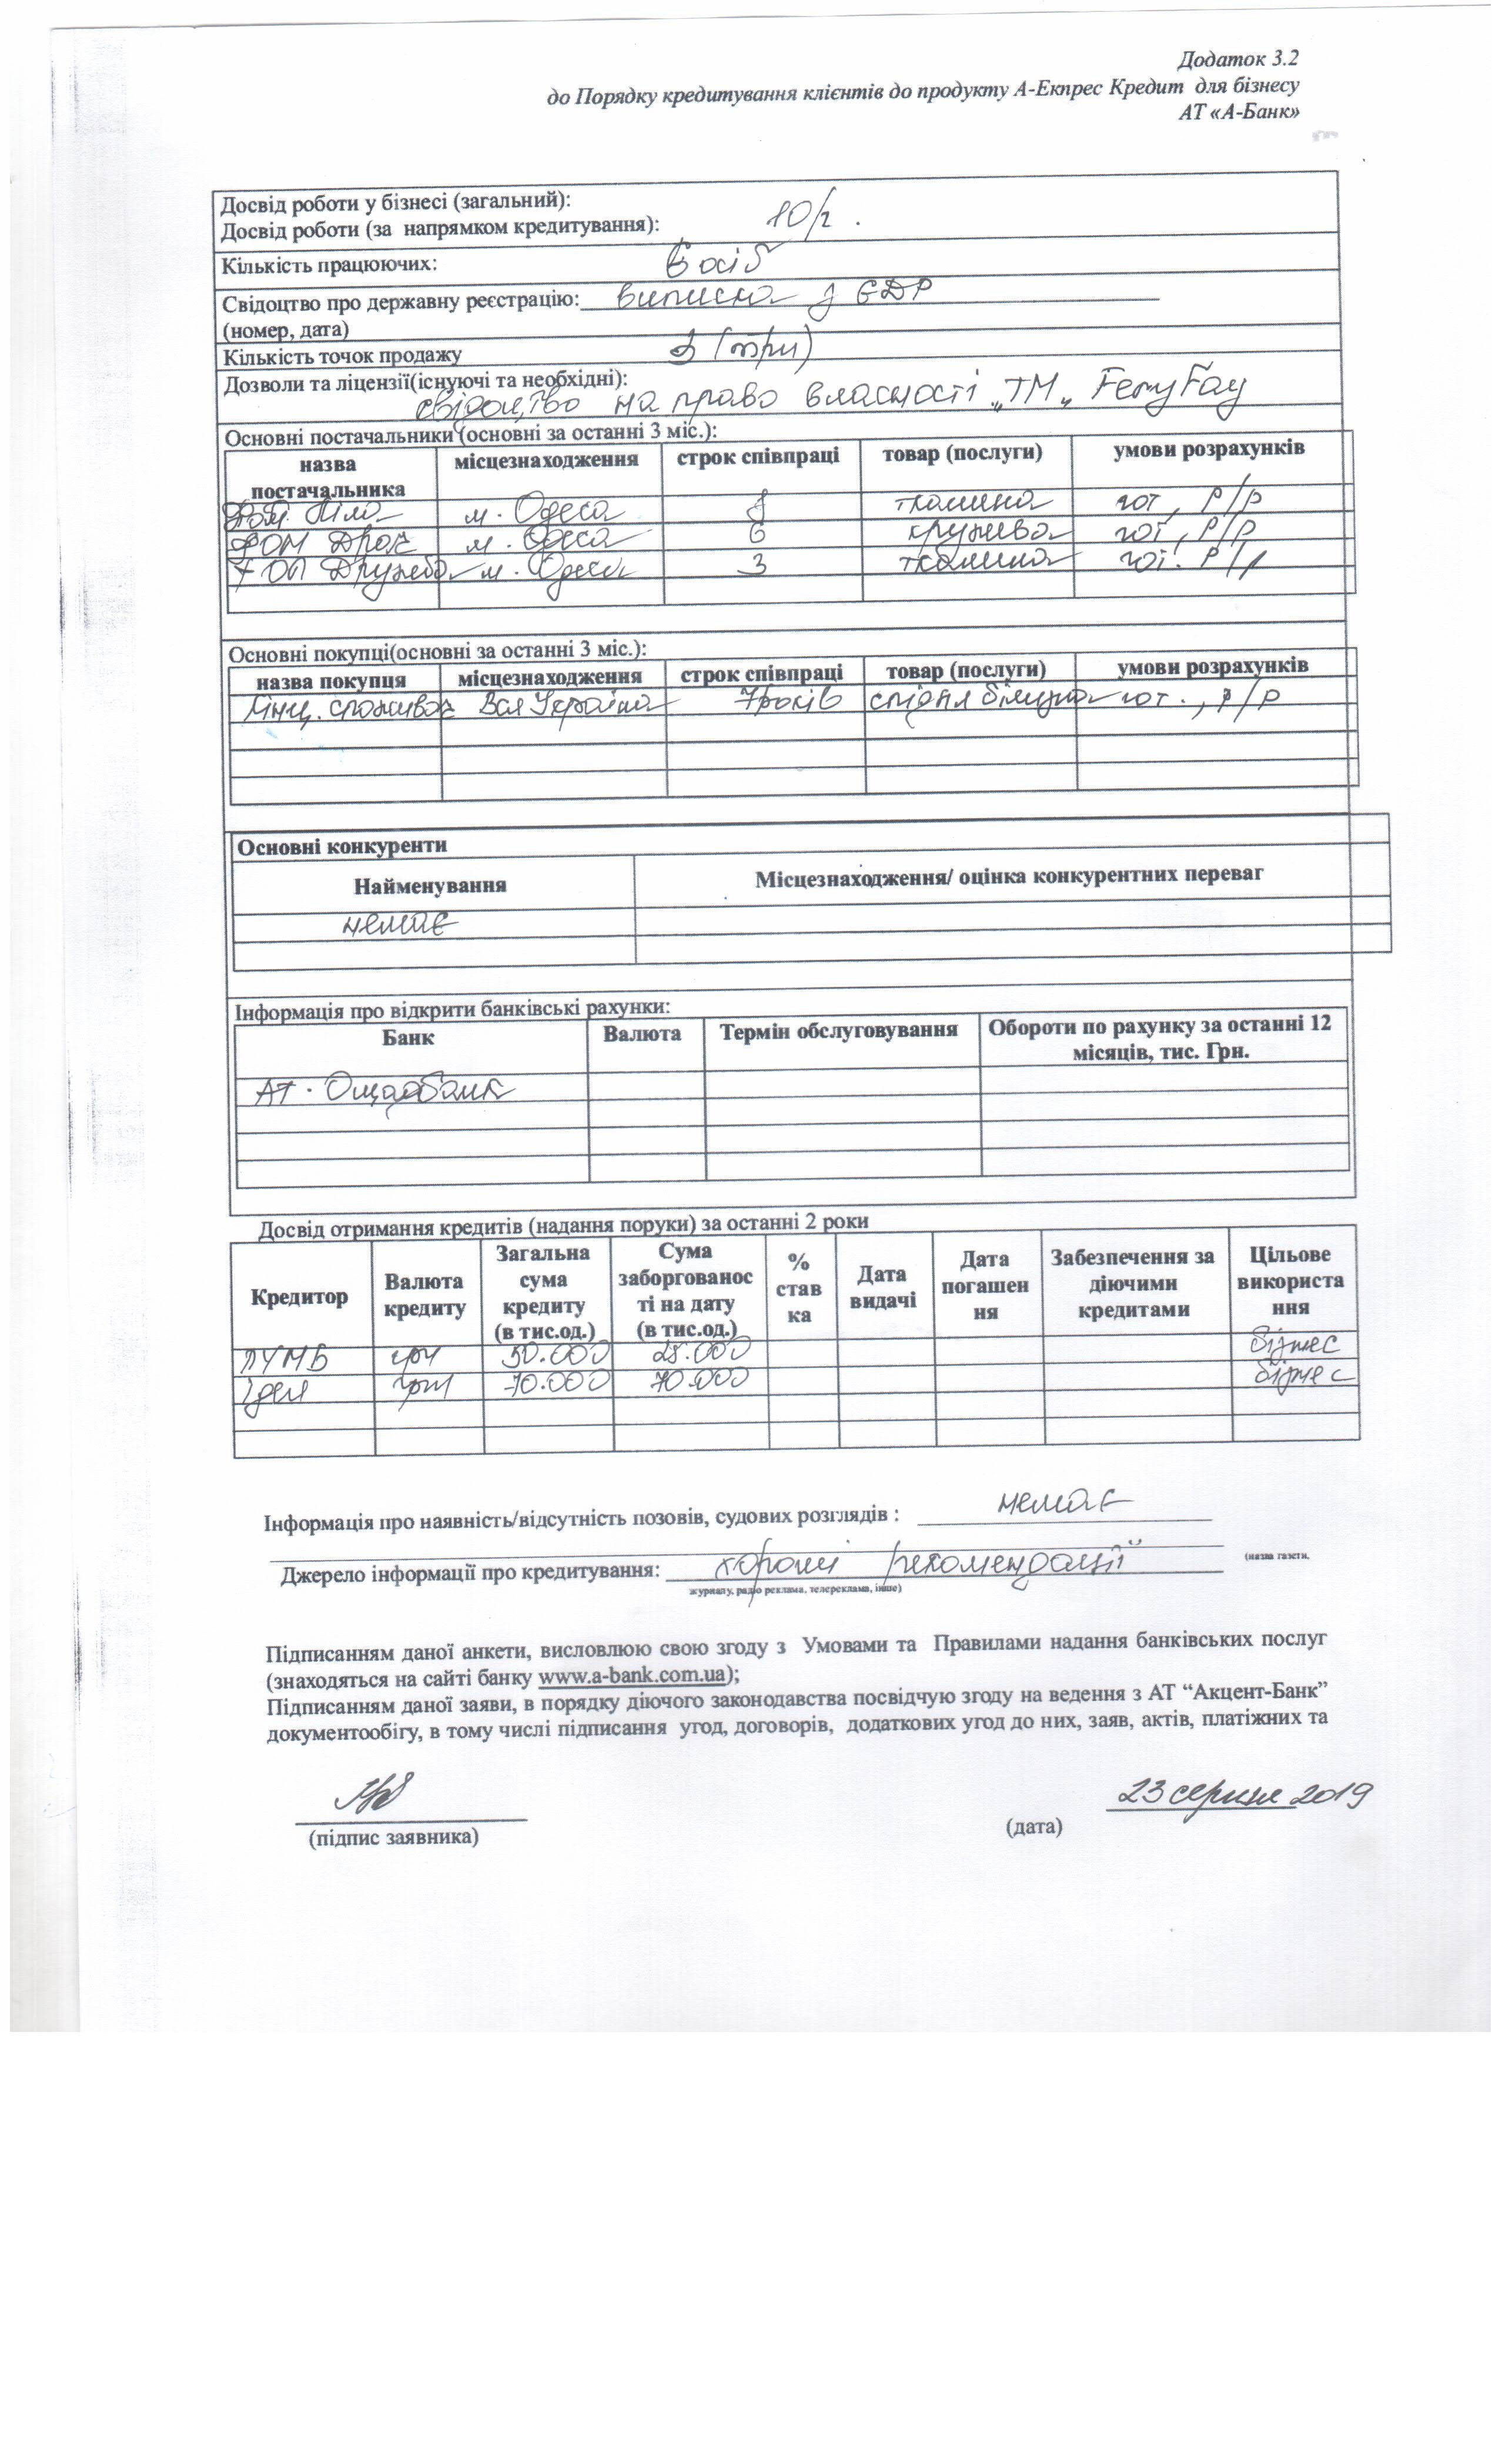 Додаток 3.2
до Порядку кредитування клієнтів до продукту А-Екпрес Кредит для бізнесу
АТ «А-Банк»
Досвід роботи у бізнесі (загальний):
Досвід роботи (за напрямком кредитування): 10/
Кількість працюючих: осіб
Свідоцтво про державну реєстрацію: виписка з ЄДР
(номер, дата)
Кількість точок продажу 3 (три)
Дозволи та ліцензії(існуючі та необхідні):
свідоцтво на право власності „ТМ„ FemyFay
Основні постачальники (основні за останні 3 міс.):
назва постачальника місцезнаходження строк співпраці товар (послуги) умови розрахунків
м. Одеса тканина гот, р/р
м. Одеса 6 кружева гот, р/р
ФОП Дружба м. Одеса 3 тканина гот. р/р
Основні покупці(основні за останні 3 міс.):
назва покупця місцезнаходження строк співпраці товар (послуги) умови розрахунків
Вся Україна 7років спідня білизна гот., р/р
Основні конкуренти
Найменування Місцезнаходження/ оцінка конкурентних переваг
немає
Інформація про відкрити банківські рахунки:
Банк Валюта Термін обслуговування Обороти по рахунку за останні 12 місяців, тис. Грн.
АТ. Ощадбанк
Досвід отримання кредитів (надання поруки) за останні 2 роки
Кредитор Валюта кредиту Загальна сума кредиту (в тис.од.) Сума заборгованос ті на дату (в тис.од.) % став ка Дата видачі Дата погашен ня Забезпечення за діючими кредитами Цільове використа ння
ПУМБ грн 50.000 25.000 бізнес
Ідея грн 70.000 70.000 бізнес
Інформація про наявність/відсутність позовів, судових розглядів : немає
Джерело інформації про кредитування: хороші рекомендації (назва газети,
журналу, радіо реклама, телереклама, інше)
Підписанням даної анкети, висловлюю свою згоду з Умовами та Правилами надання банківських послуг
(знаходяться на сайті банку www.a-bank.com.ua);
Підписанням даної заяви, в порядку діючого законодавства посвідчую згоду на ведення з АТ “Акцент-Банк”
документообігу, в тому числі підписання угод, договорів, додаткових угод до них, заяв, актів, платіжних та
23 серпня 2019
(підпис заявника) (дата)